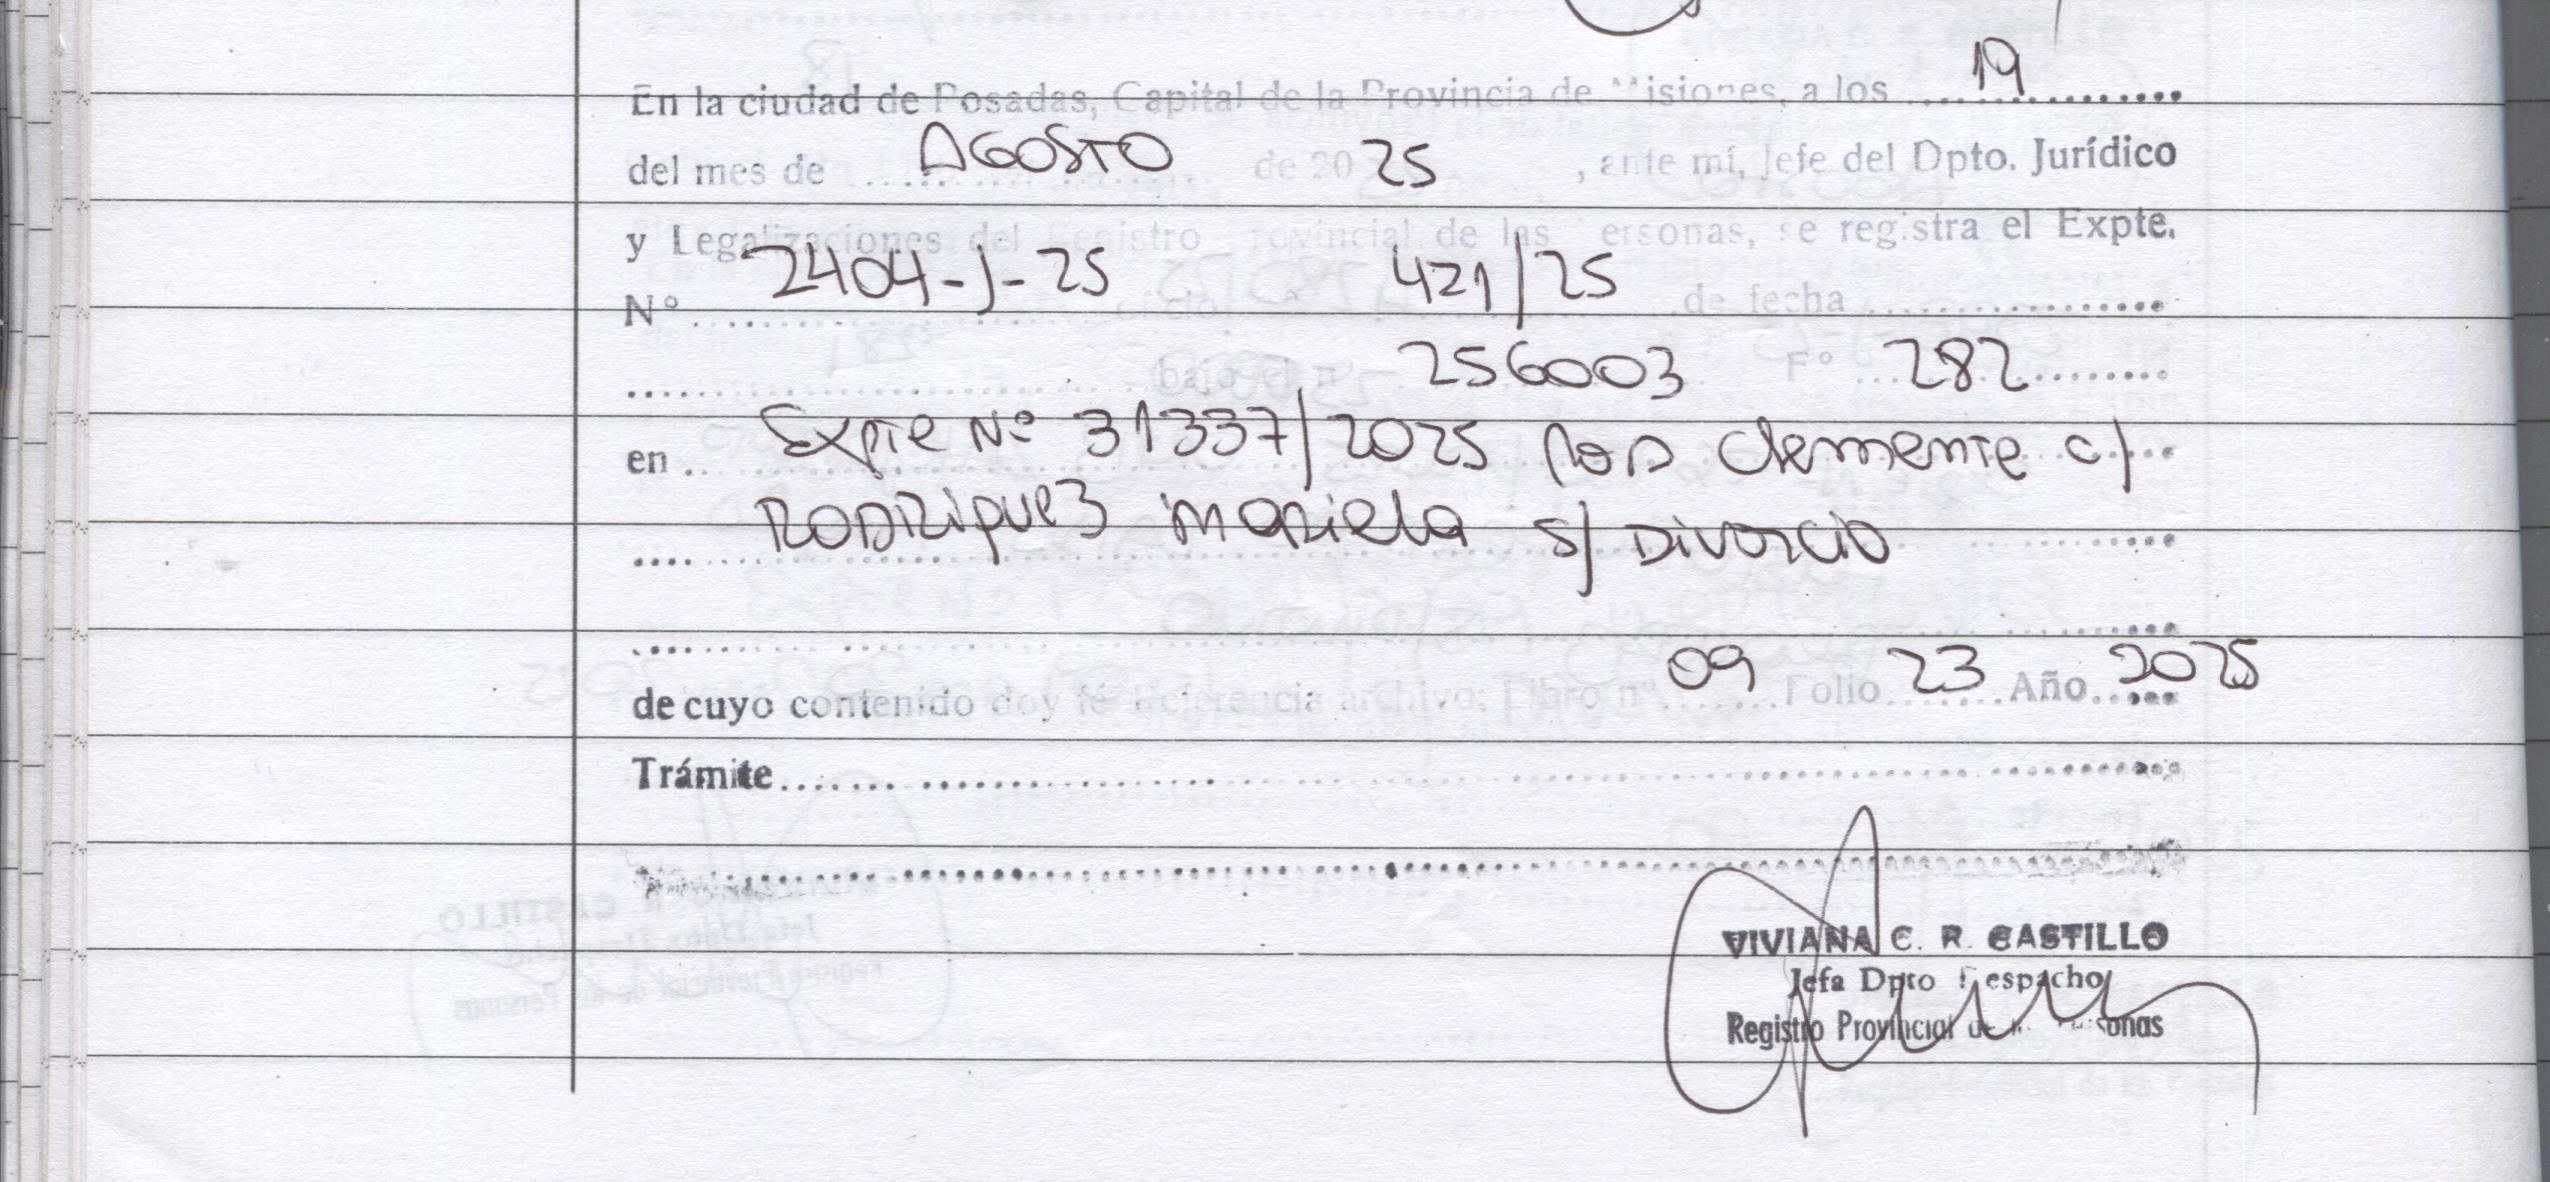 En la ciudad de Posadas, Capital de la Provincia de Misiones, a los 19
del mes de AGOSTO de 20 25, ante mí, Jefe del Dpto. Jurídico
y Legalizaciones del Registro Provincial de las Personas, se registra el Expte.
Nº 2404-J-25 oficio 421/25 de fecha
bajo el nº 256003 Fº 282
en Expte Nº 31337/2025 Clemente c/
RODRIGUEZ Mariela s/ DIVORCIO
de cuyo contenido doy fé Referencia archivo: Libro nº 09 Folio 23 Año 2025
Trámite
VIVIANA C. R. CASTILLO
Jefa Dpto Despacho
Registro Provincial de las Personas